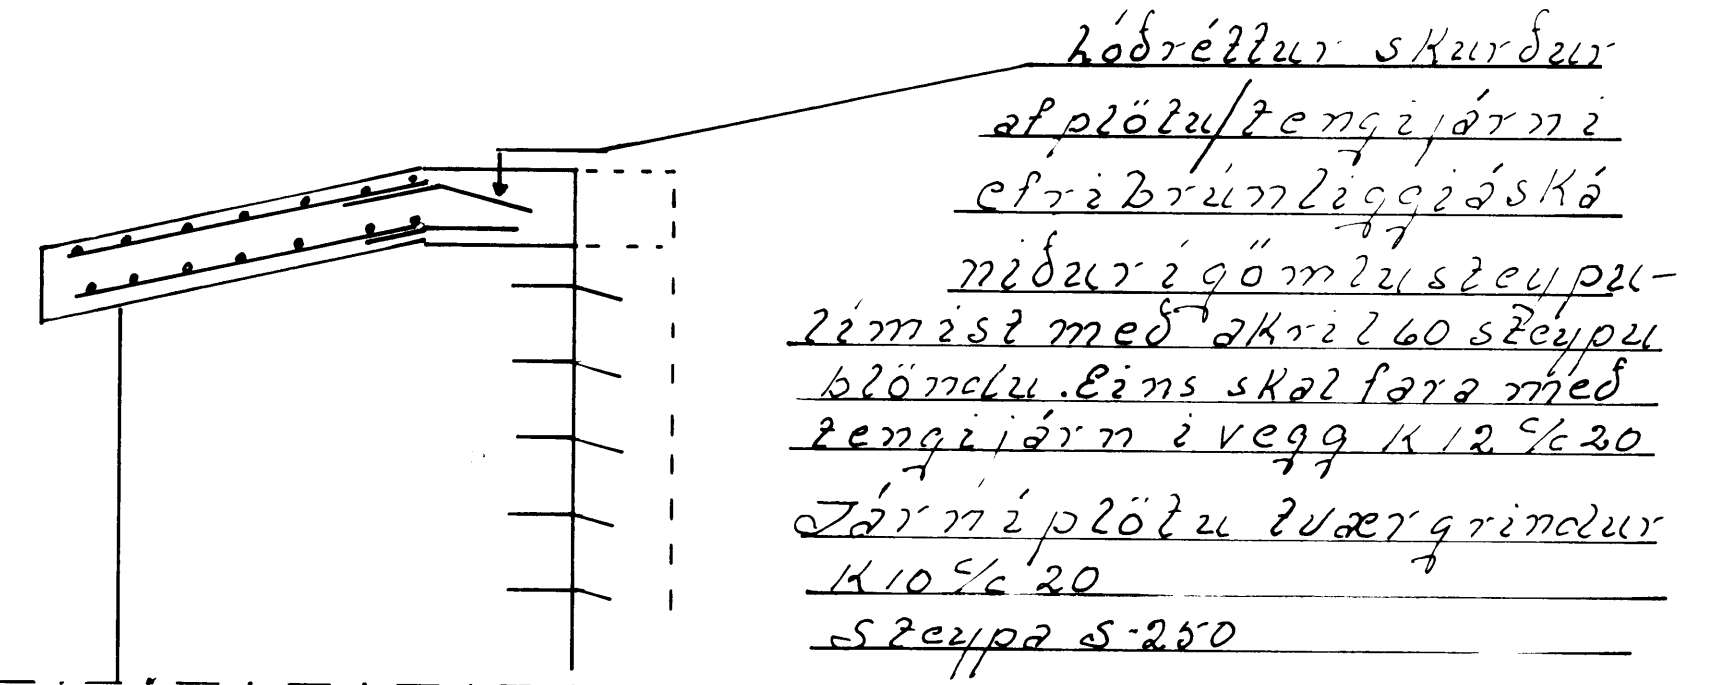 lóðréttur skurður
af plötu/tengijárni
efri brún liggi á ská
niður í gömlu steypu-
límist með akríl 60 steypu
blöndu. Eins skal fara með
tengijárn í vegg K 12 c/c 20
Járn í plötu tvær grindur
K 10 c/c 20
Steypa S-250